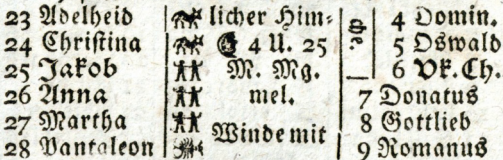 23 Adelheid licher Him⸗ 4 Domin.
24 Christina 4 U. 25 5 Oswald
25 Jakob M. Mg. 6 Vk. Ch.
26 Anna mel. 7 Donatus
27 Martha Winde mit 8 Gottlieb
28 Pantaleon 9 Romanus